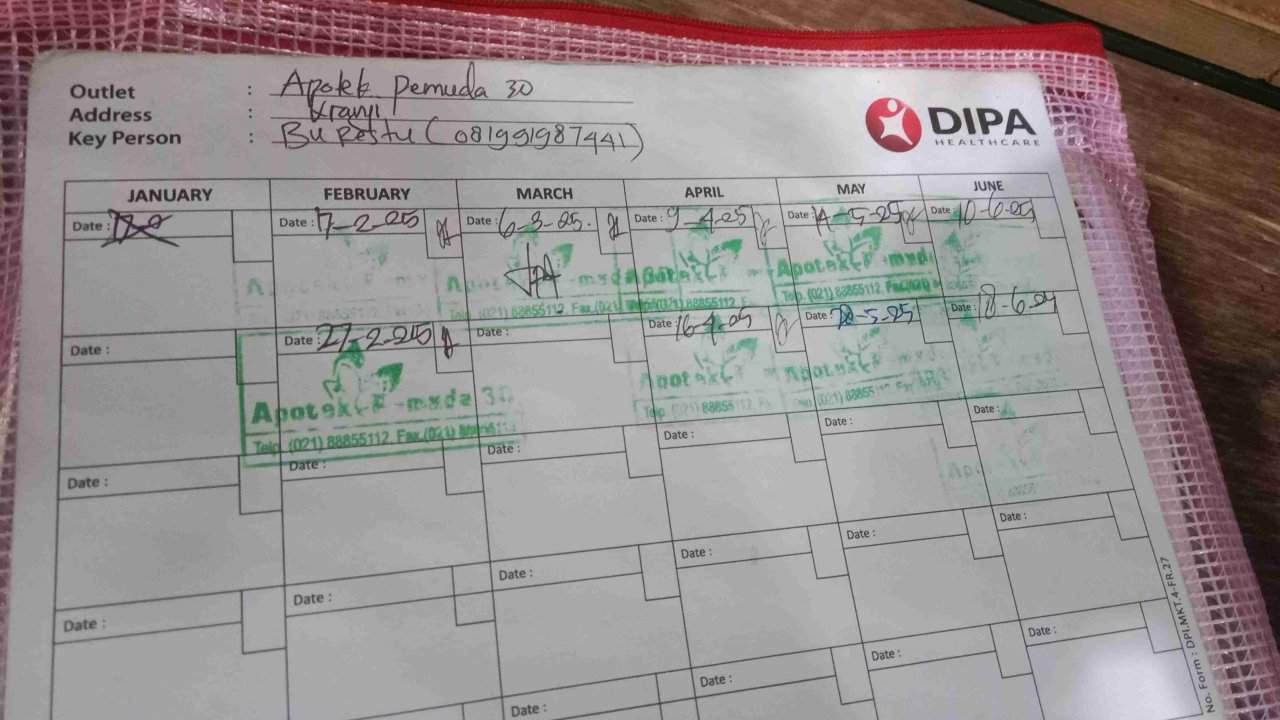 Outlet : Apotek Pemuda 30
Address : Kranji
Key Person : Bu Restu (081991987441)
DIPA
HEALTHCARE
JANUARY FEBRUARY MARCH APRIL MAY JUNE
Date : Date : 17-2-25 Date : 6-3-25. Date : 9-4-25 Date : 14-5-25 Date : 10-6-25
Apotek
Telp. (021) 88855112. Fax.(021)
Date : Date : 27-2-25 Date : Date : 16-4-25 Date : 28-5-25 Date :
Apotek
Telp. (021) 88855112. Fax.(021)
Date : Date : Date : Date : Date : Date :
Date : Date : Date : Date : Date : Date :
Date : Date : Date : Date :
No. Form : DPI.MKT.4-FR.27